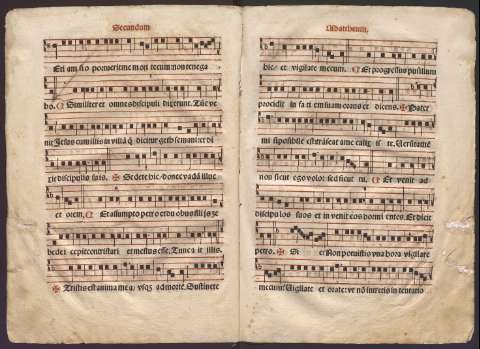 Secundum
Eti am si o
bo. C Similiter et omnes discipuli dixerunt. Tūc ve
nit Jesus cum illis in villā q̄ dicitur gethsemani: et di
xit discipulis suis. ✠ Sedete hic donec vadā illuc
et orem. C Et assumpto petro et duobus filiis ze
bedei cepit contristari et mestus esse. Tunc a it illis.
✠ Tristis est anima me a: vsqȝ ad mortē. Sustinete
Mattheum.
hic et vigilate mecum. C Et progressus pusillum
procidit in fa ci em suam orans et dicens. ✠ Pater
mi si possibile est transeat a me calix is te. Uerūtamē
non sicut ego volo: sed sicut tu. C Et venit ad
discipulos suos et in venit eos dormi entes. Et dicit
petro. ✠ Si et Non potuistis vna hora vigilare
mecum: Uigilate et orate: vt nō intretis in tentatio